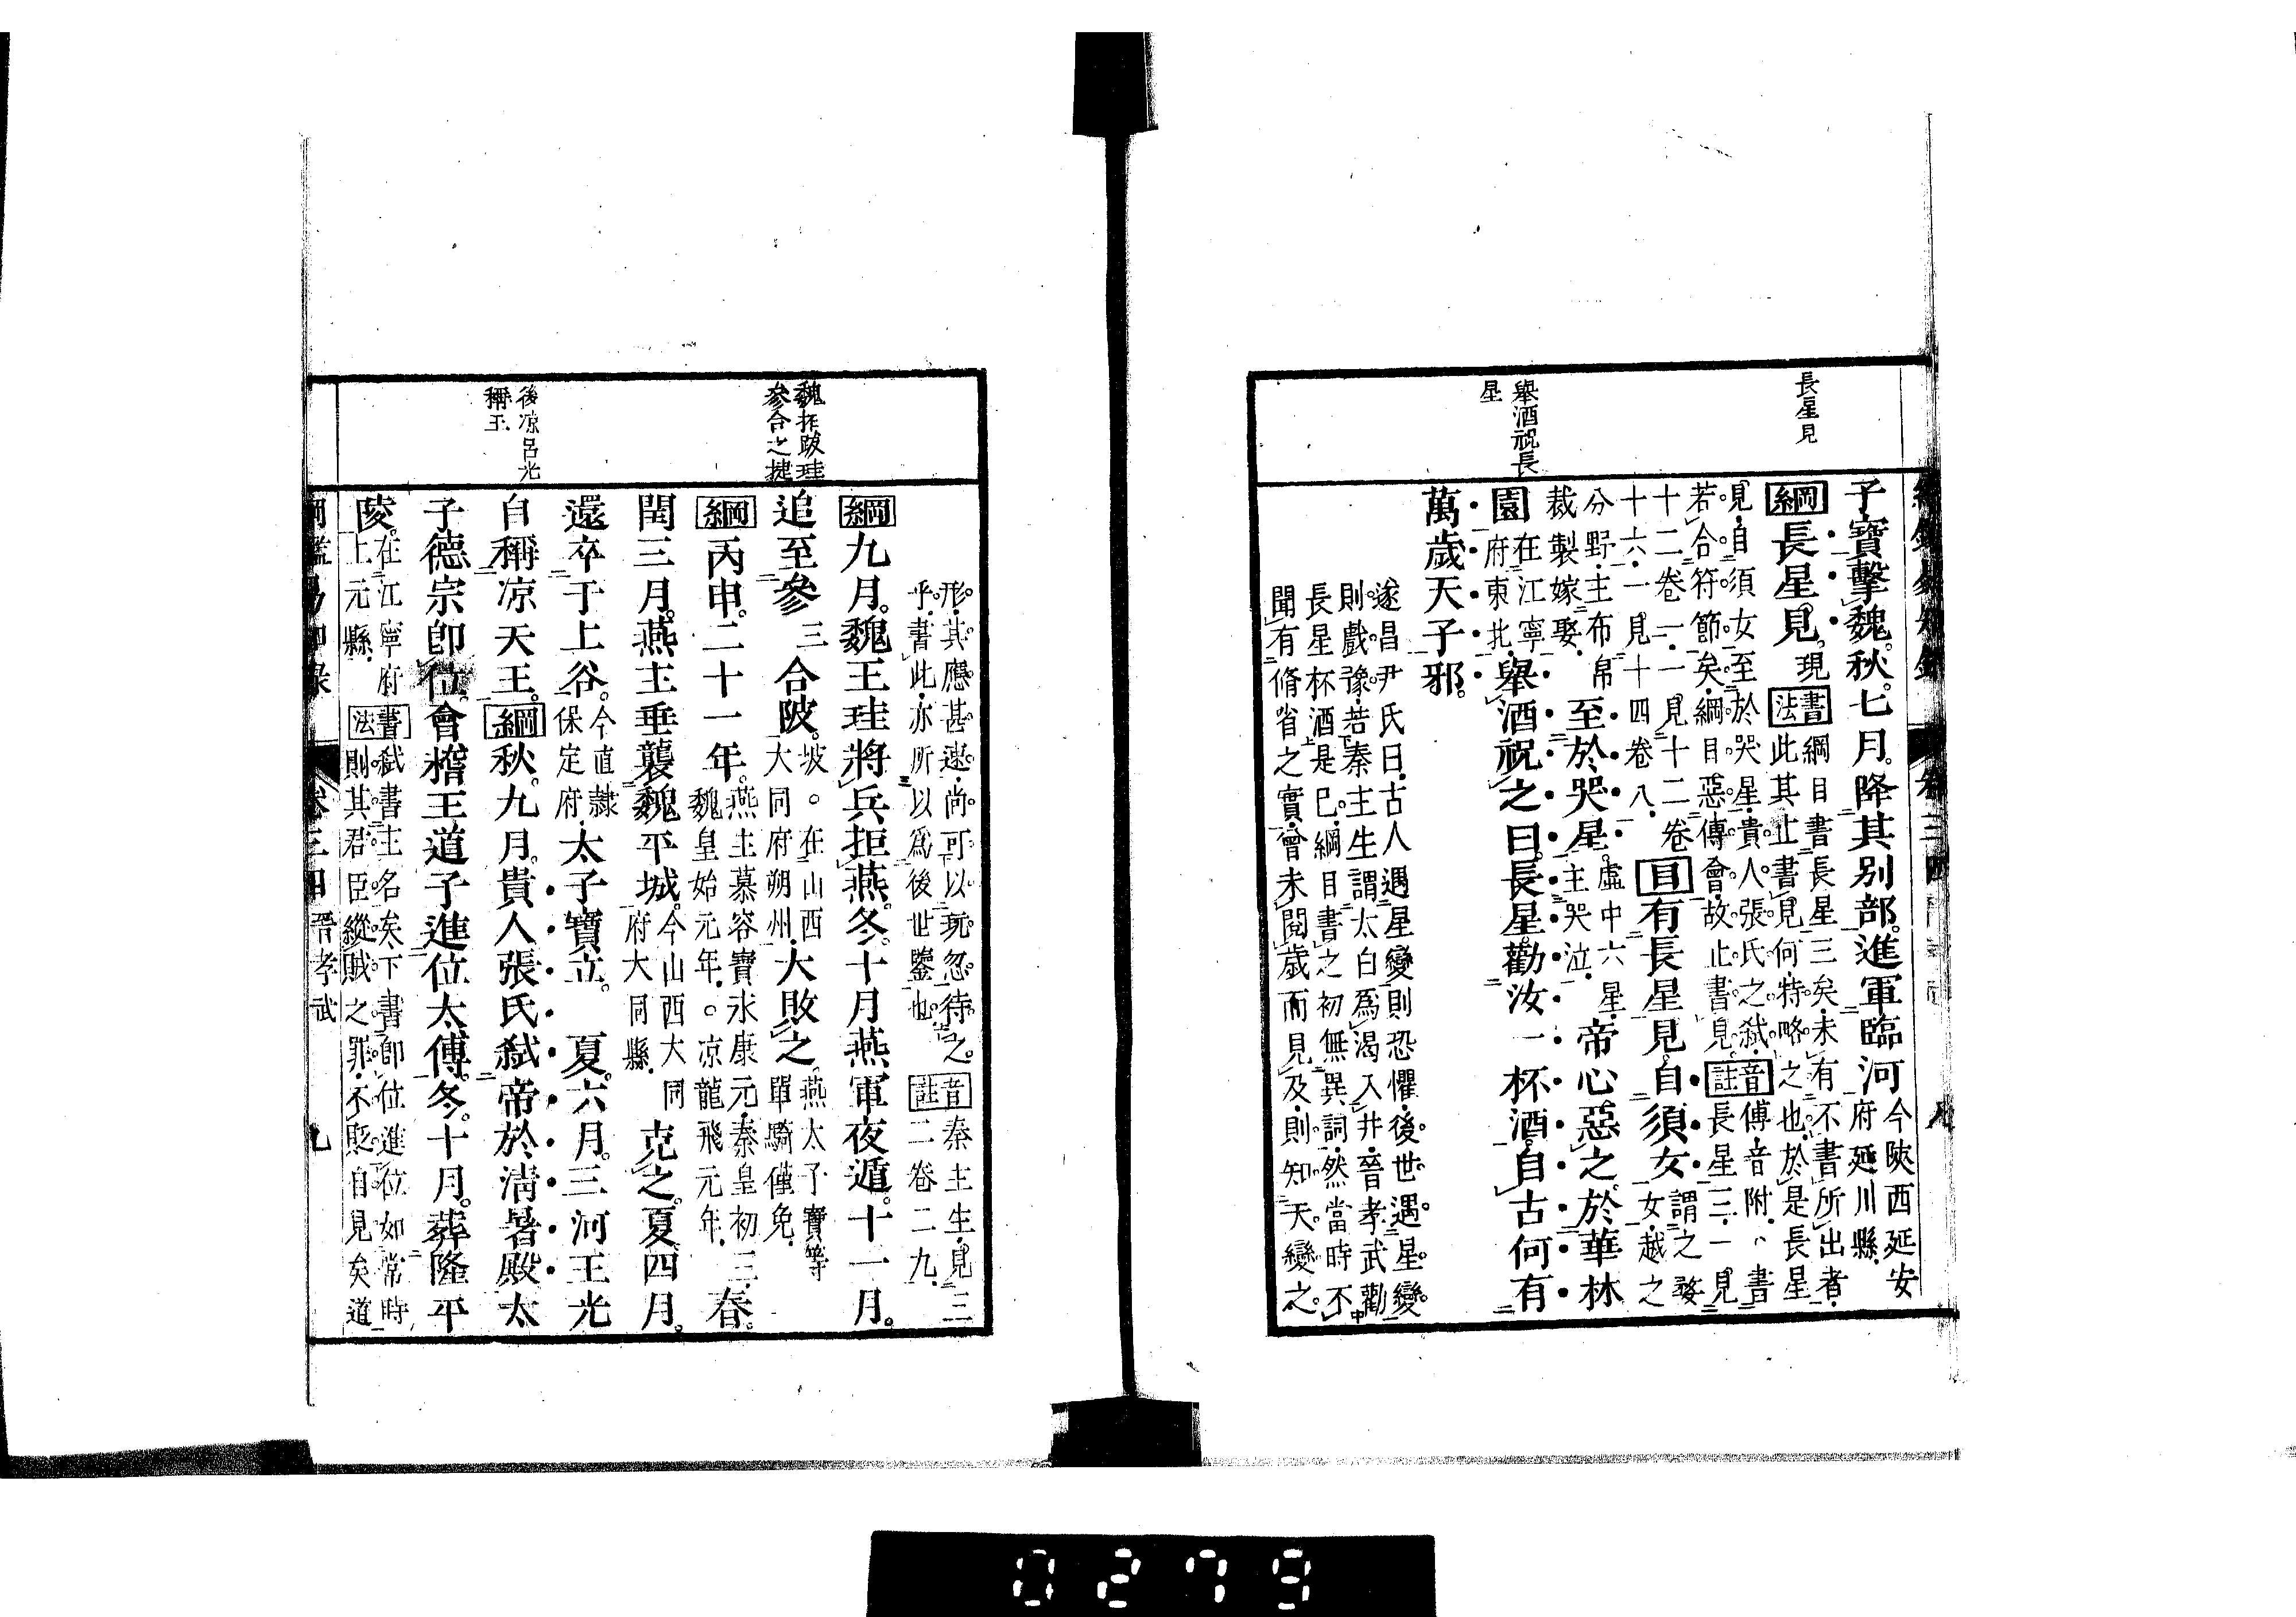 長星見
舉酒祝長
星
子寶擊魏秋七月降其別部進軍臨河
今陝西延安
府延川縣
綱長星見
現
書法
綱目書長星三矣未有不書所出者
此其止書見何特略之也於是長星
見自須女至於哭星貴人張氏之弒
若合符節矣綱目惡傅會故止書見
音註
傅音附書
長星三一見
十二卷一一見十二卷
十六一見十四卷八
目有長星見自須女
謂之婺
女越之
分野主布帛
裁製嫁娶
至於哭星
虛中六星
主哭泣
帝心惡之於華林
園
在江寧
府東北
舉酒祝之曰長星勸汝一杯酒自古何有
萬歲天子邪
遂昌尹氏曰古人遇星變則恐懼後世遇星變
則戲豫若秦主生謂太白爲渴入井晉孝武勸
長星杯酒是已綱目書之初無異詞然當時不
聞有脩省之實曾未閱歲而見及則知天變之
魏拓跋珪
參合之捷
後凉呂光
稱王
形其應甚遠尚可以玩忽待之
乎書此亦所以爲後世鑒也
音註
秦主生見三
二卷二九
綱九月魏王珪將兵拒燕冬十月燕軍夜遁十一月
追至參
三
合陂
坡在山西
大同府朔州
大敗之
燕太子寶等
單騎僅免
綱丙申二十一年
燕主慕容寶永康元秦皇初三
魏皇始元年凉龍飛元年
春
閏三月燕主垂襲魏平城
今山西大同
府大同縣
克之夏四月
還卒于上谷
今直隸
保定府
太子寶立夏六月三河王光
自稱凉天王綱秋九月貴人張氏弒帝於清暑殿太
子德宗卽位會稽王道子進位太傅冬十月葬隆平
陵
在江寧府
上元縣
書法
弒書主名矣下書卽位進位如常時
則其君臣縱賊之罪不貶自見矣道
綱鑑易知錄 卷三四 晉孝武 九
0279